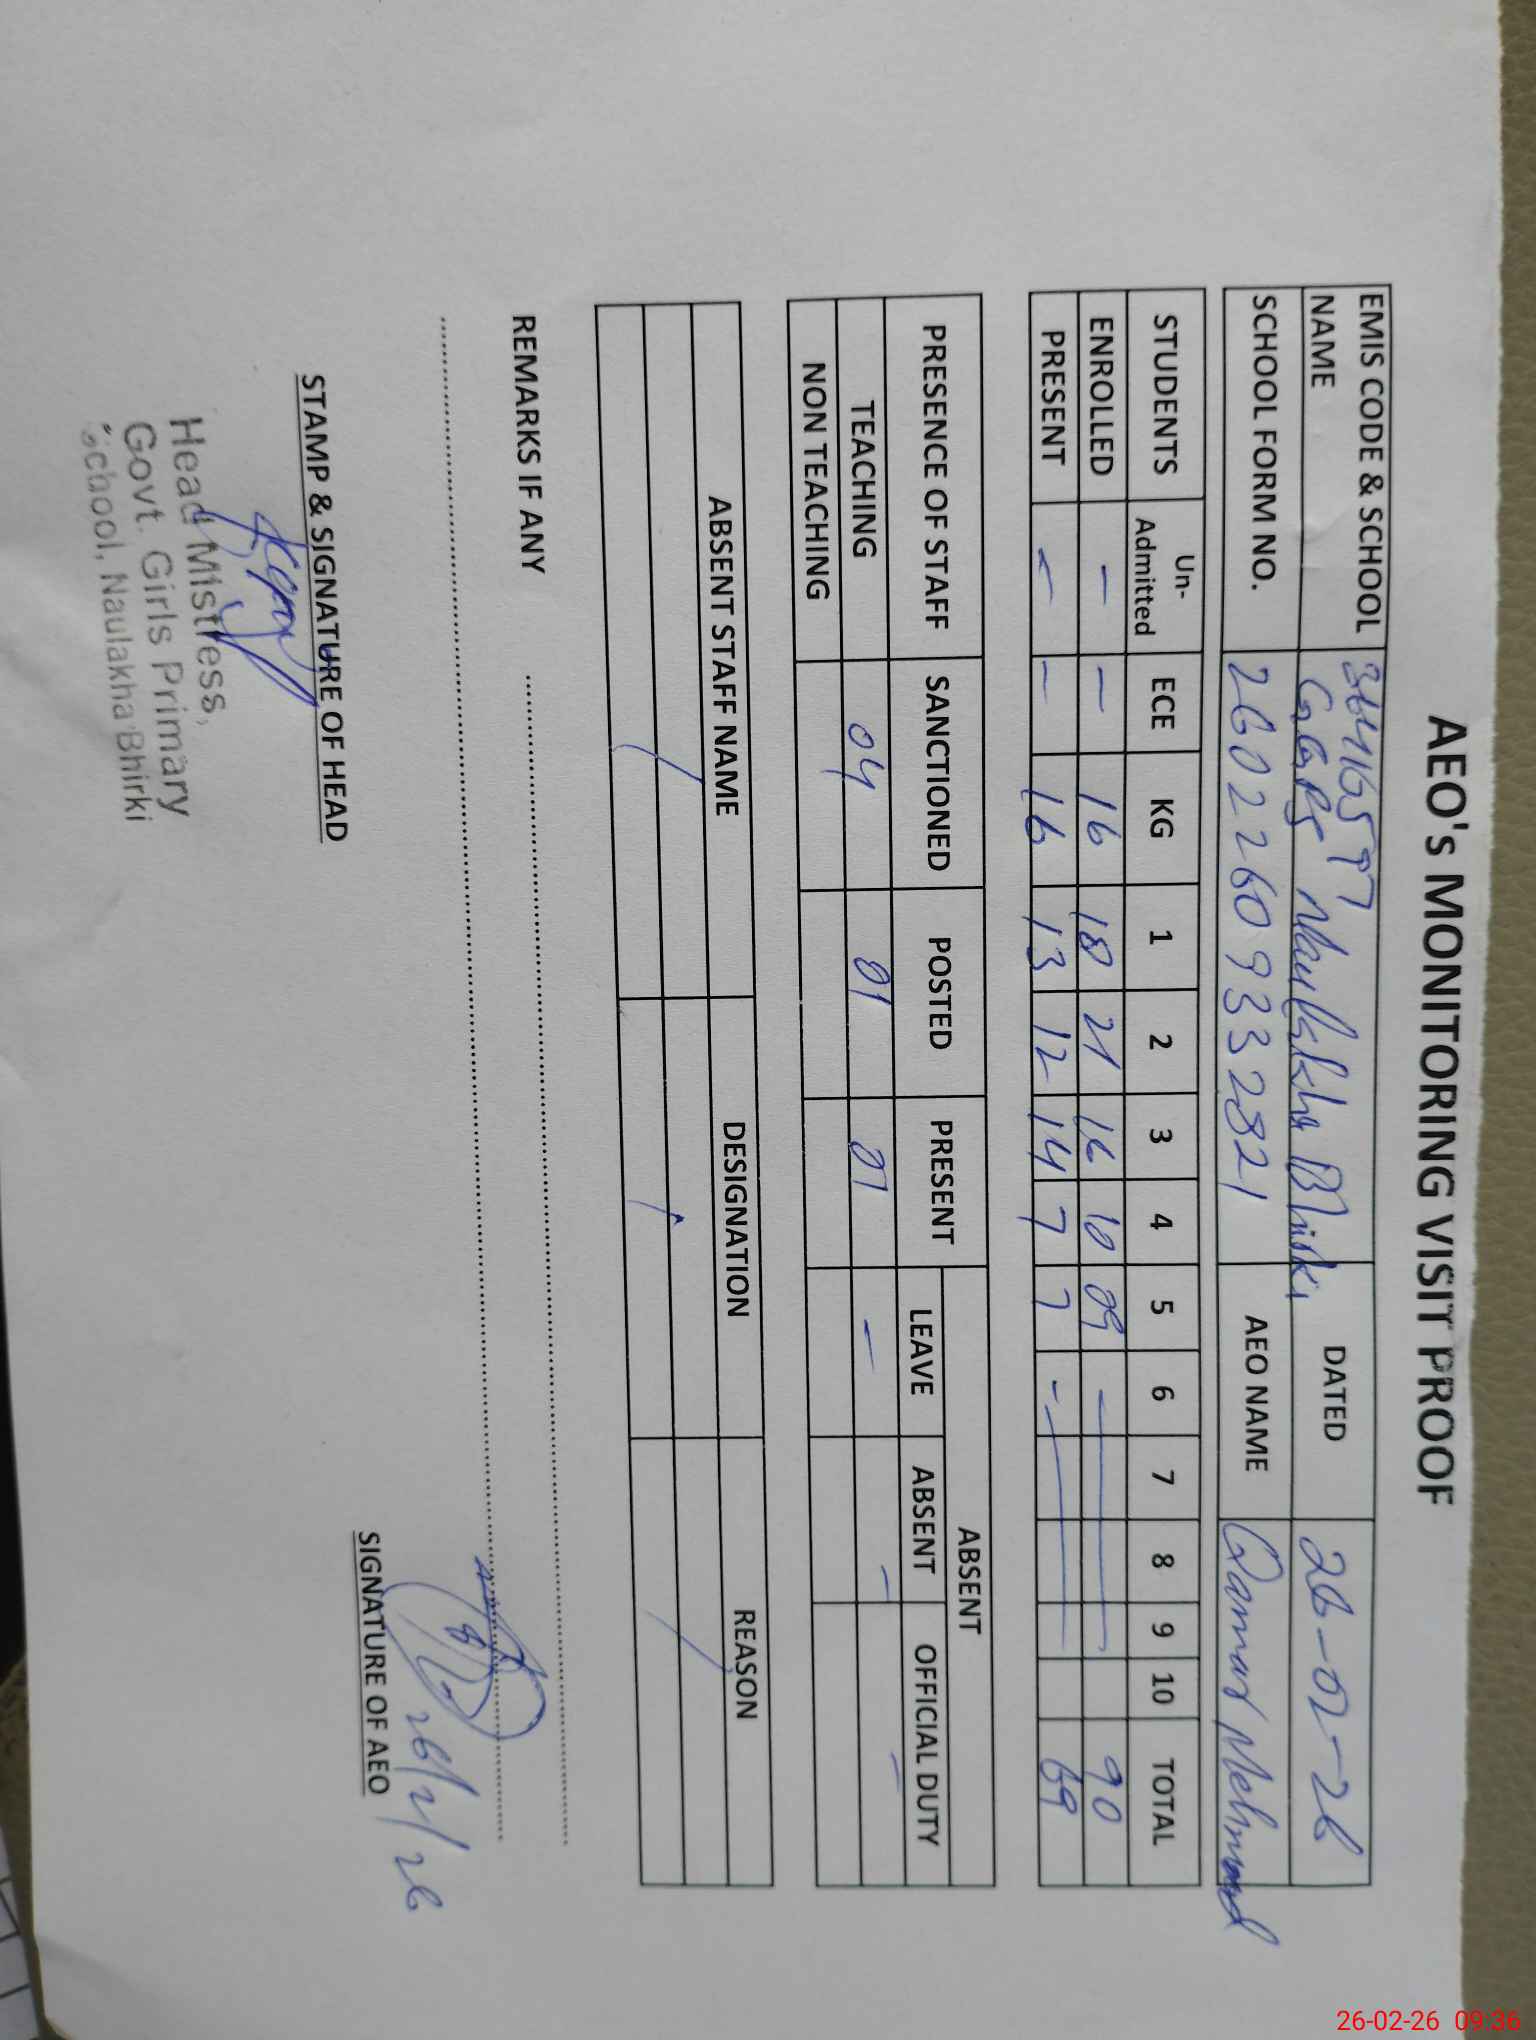 AEO's MONITORING VISIT PROOF
EMIS CODE & SCHOOL NAME 36416597 GGPS Naulakha Bhirki DATED 26-02-26
SCHOOL FORM NO. 26022609332821 AEO NAME Qamar Mehmood
STUDENTS Un-Admitted ECE KG 1 2 3 4 5 6 7 8 9 10 TOTAL
ENROLLED - - 16 18 21 16 10 09 - 90
PRESENT - - 16 13 12 14 7 7 - 69
PRESENCE OF STAFF SANCTIONED POSTED PRESENT ABSENT
LEAVE ABSENT OFFICIAL DUTY
TEACHING 04 01 01 - - -
NON TEACHING
ABSENT STAFF NAME DESIGNATION REASON
REMARKS IF ANY
STAMP & SIGNATURE OF HEAD
SIGNATURE OF AEO
26/2/26
Head Mistress,
Govt. Girls Primary
School, Naulakha Bhirki
26-02-26 09:36